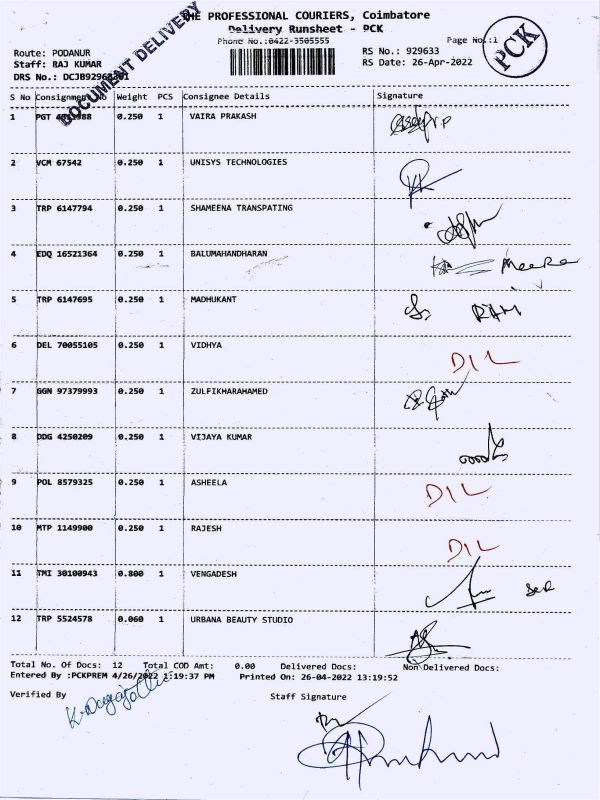 THE PROFESSIONAL COURIERS, Coimbatore
Delivery Runsheet - PCK
Phone No.:0422-3505555 Page No.:1
Route: PODANUR RS No.: 929633
Staff: RAJ KUMAR RS Date: 26-Apr-2022
DRS No.:
DOCUMENT DELIVERY
PCK
S No Consignment No Weight PCS Consignee Details Signature
1 PGT 0.250 1 VAIRA PRAKASH
2 VCM 67542 0.250 1 UNISYS TECHNOLOGIES
3 TRP 6147794 0.250 1 SHAMEENA TRANSPATING
4 EDQ 16521364 0.250 1 BALUMAHANDHARAN Meera
5 TRP 6147695 0.250 1 MADHUKANT RAM
6 DEL 70055105 0.250 1 VIDHYA DIL
7 GGN 97379993 0.250 1 ZULFIKHARAHAMED
8 DDG 4250209 0.250 1 VIJAYA KUMAR
9 POL 8579325 0.250 1 ASHEELA DIL
10 MTP 1149900 0.250 1 RAJESH DIL
11 TMI 30100943 0.800 1 VENGADESH
12 TRP 5524578 0.060 1 URBANA BEAUTY STUDIO
Total No. Of Docs: 12 Total COD Amt: 0.00 Delivered Docs: Non Delivered Docs:
Entered By :PCKPREM 4/26/2022 1:19:37 PM Printed On: 26-04-2022 13:19:52
Verified By Staff Signature